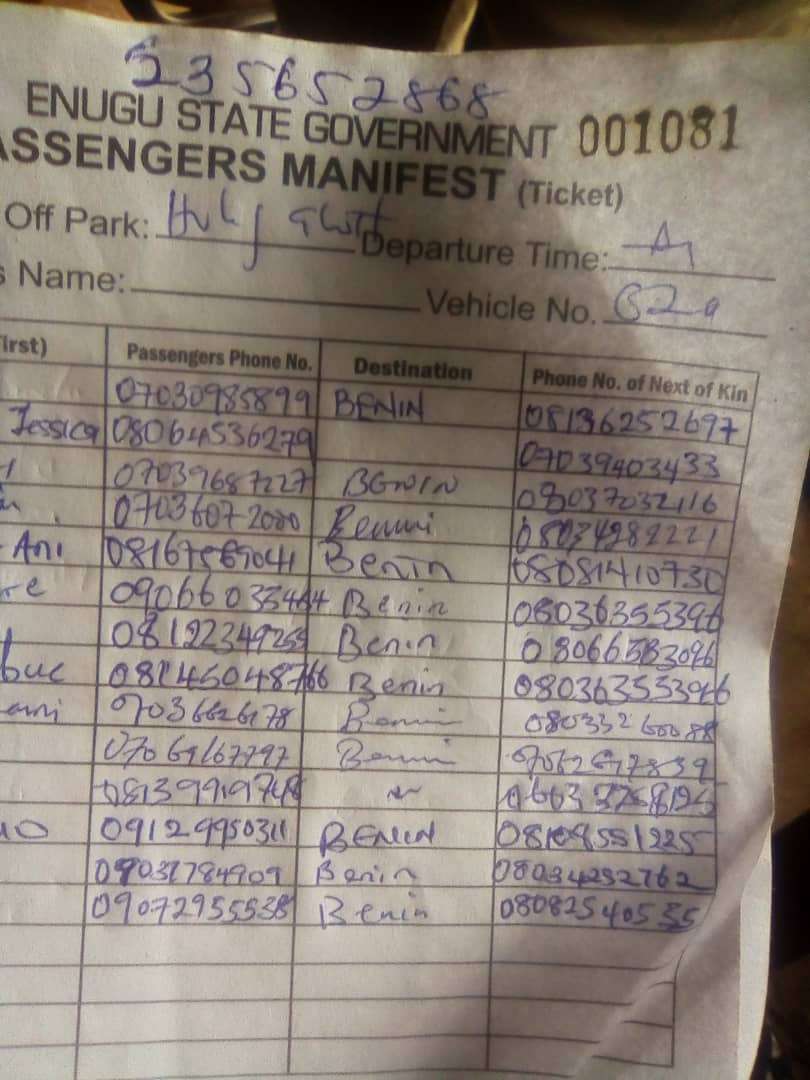 235652868
ENUGU STATE GOVERNMENT 001081
ASSENGERS MANIFEST (Ticket)
Off Park: Holy
Departure Time:
s Name:
Vehicle No.
irst) Passengers Phone No. Destination Phone No. of Next of Kin
07030985899 BENIN 08136252697
Jessica 08064536279 07039403433
07039687227 BENIN 08037032116
07036072000 Benin 08034282221
Ani Benin 08081410730
re 09066033464 Benin 08036355396
08122349255 Benin 08066583096
buc 08145048766 Benin 08036355396
ami 9036626178 Benin 08033260088
07069167797 Benin
08139919748
09129950311 BENIN 08108551225
09031784909 Benin 08034252762
09072955538 Benin 08082540535